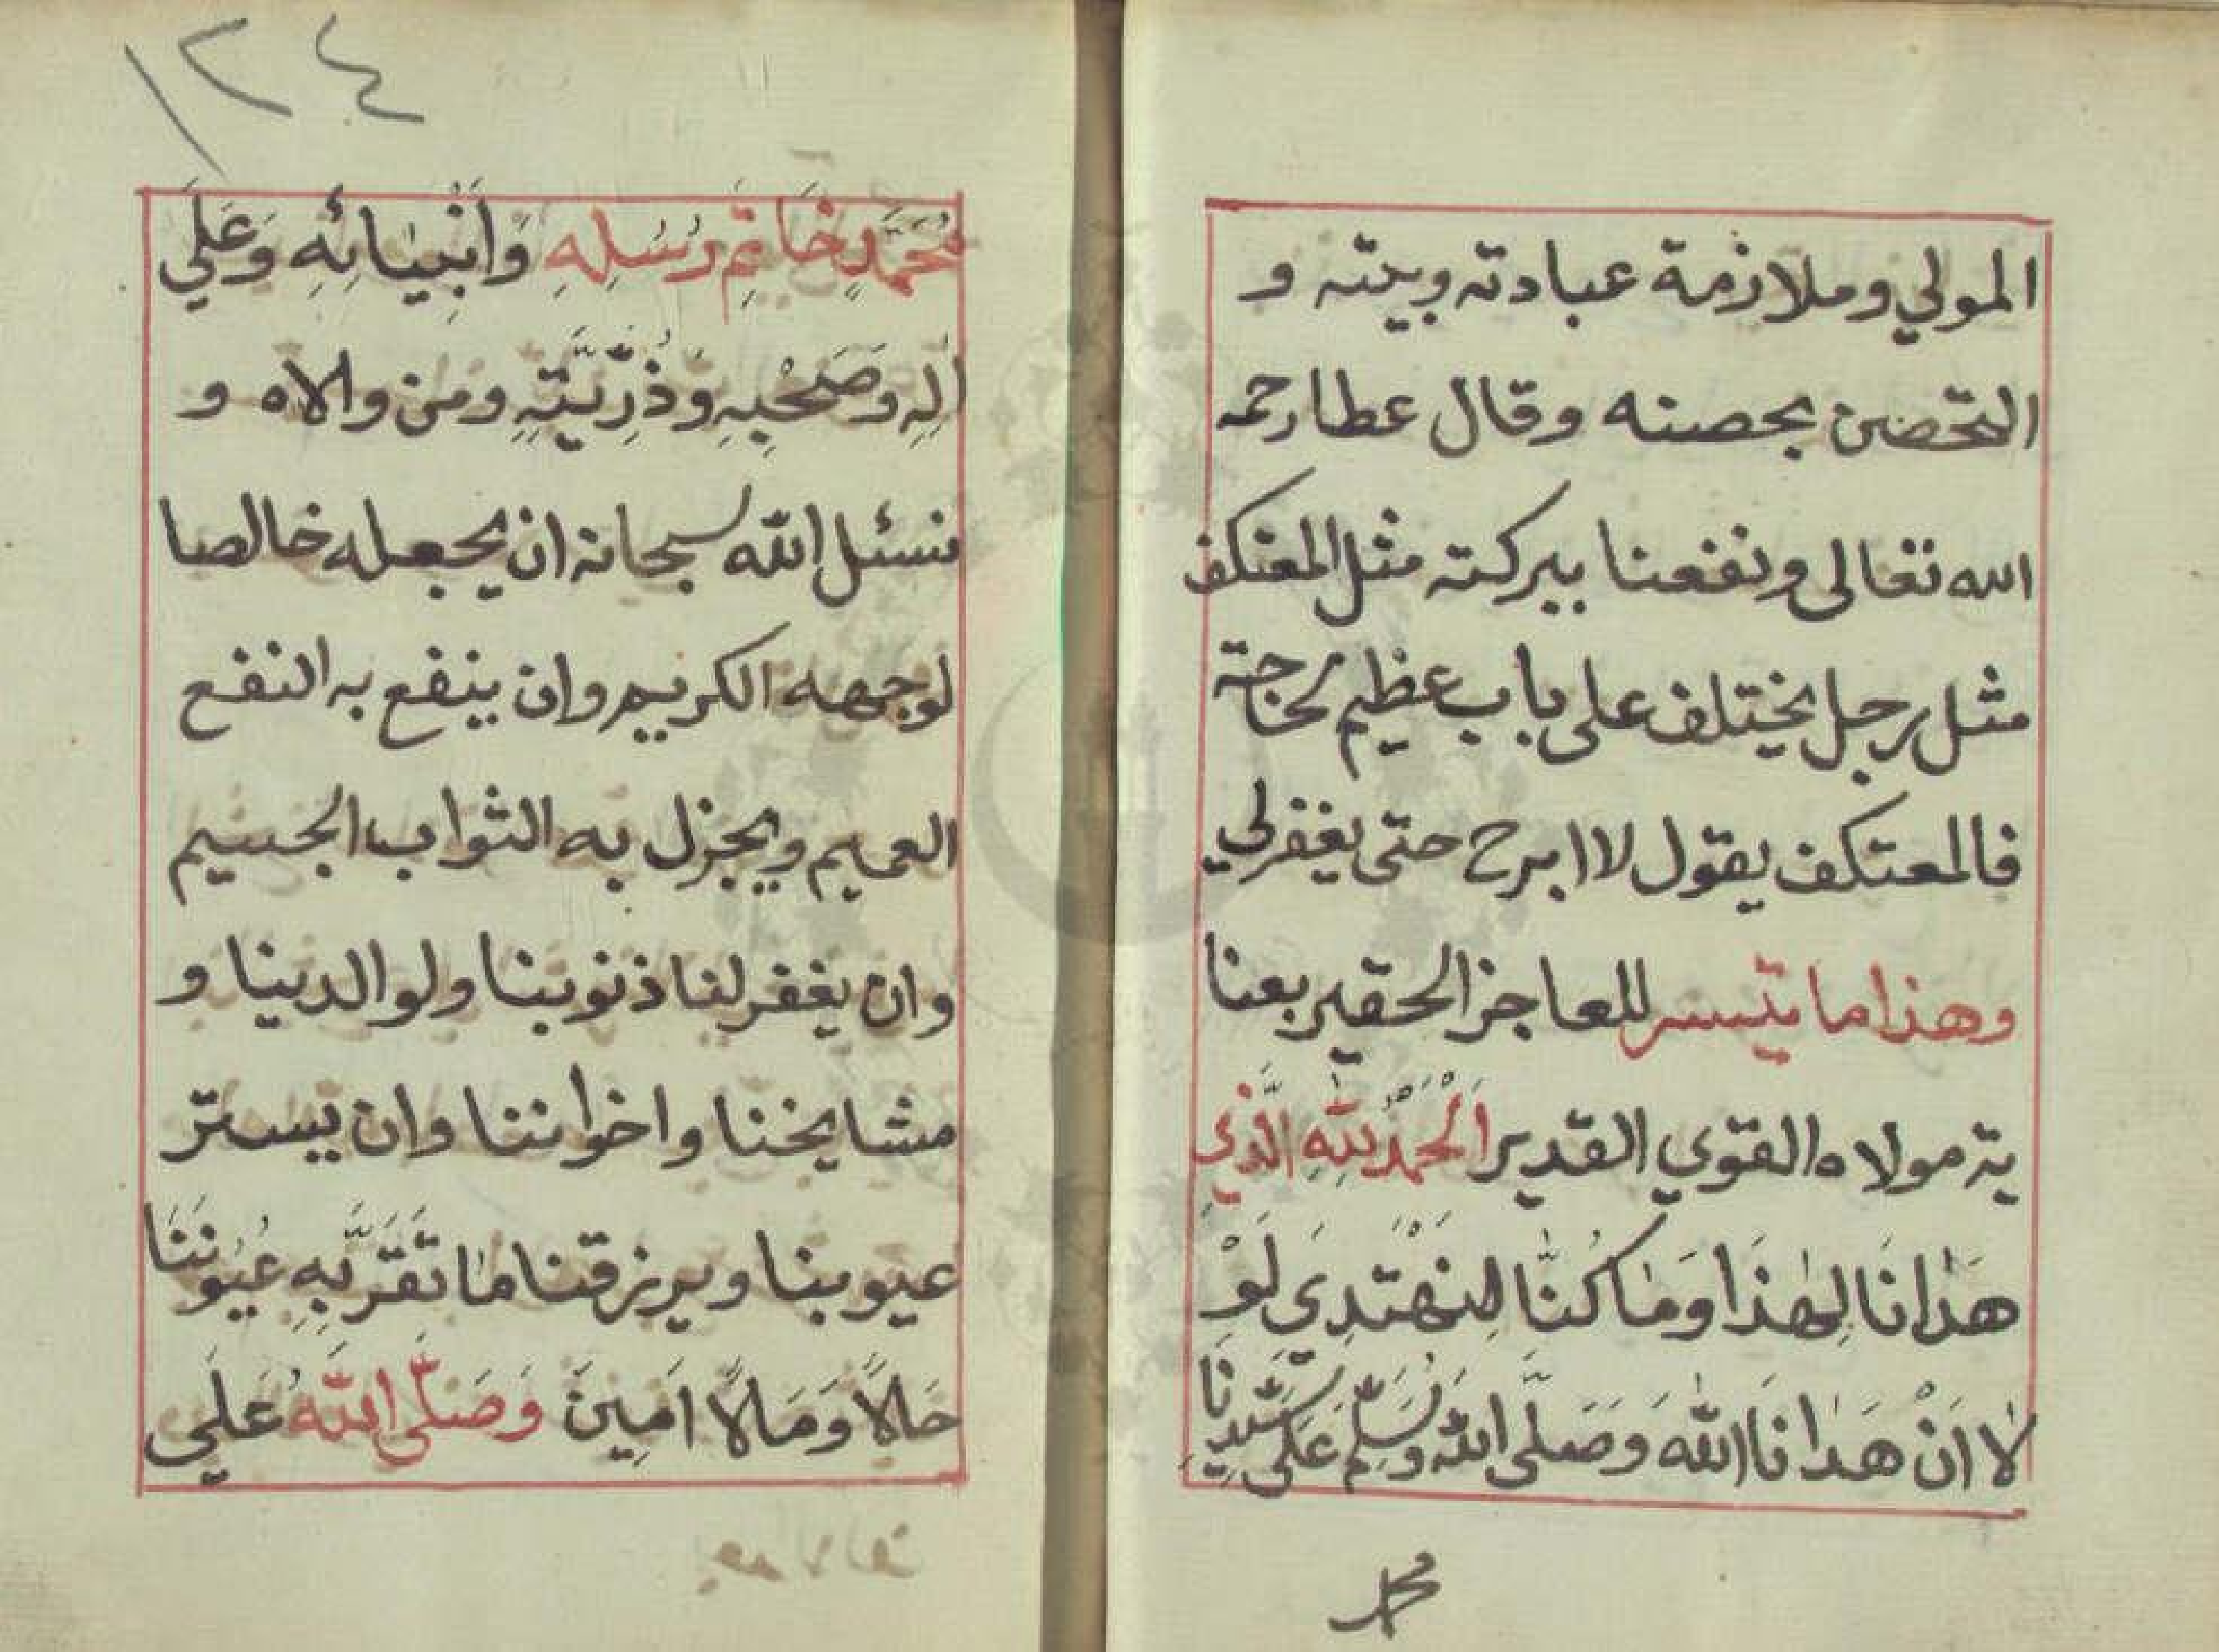 المولي وملازمة عبادته وبيته و
التحضن بحصنه وقال عطا رحمه
الله تعالى ونفعنا ببركته مثل المعتكف
مثل رجل يختلف على باب عظيم لحاجة
فالمعتكف يقول لا ابرح حتى يغفر لي
وهذا ما تيسر للعاجز الحقير بعنا
ية مولاه القوي القدير اَلْحَمْدُ لِلّٰهِ الَّذِي
هَدٰانَا لِهٰذَا وَمٰا كُنَّا لِنَهْتَدِيَ لَوْ
لٰا اَنْ هَدٰانَا اللّٰه وَصَلَّى اللّٰه وَسَلَّمَ عَلَى سَيِّدِنَا
محمد
١٢٤
مُحَمَّدٍ خَاتِمِ رُسُلِهِ وَاَنْبِيٰائِهِ وَعَلَي
اٰلِهِ وَصَحْبِهِ وَذُرِّيَّتِهِ ومن والاه و
نسئل اللّه سبحانه ان يجعله خالصا
لوجهه الكريم وان ينفع به النفع
العميم ويجزل به الثواب الجسيم
وان يغفر لنا ذنوبنا ولوالدينا و
مشايخنا واخواننا وان يستر
عيوبنا ويرزقنا مٰا تَقَرَّ بِهِ عُيُونَنَا
حَالاً وَمَالاً اَمِينَ وَصَلَّى اللّٰهُ عَلَي